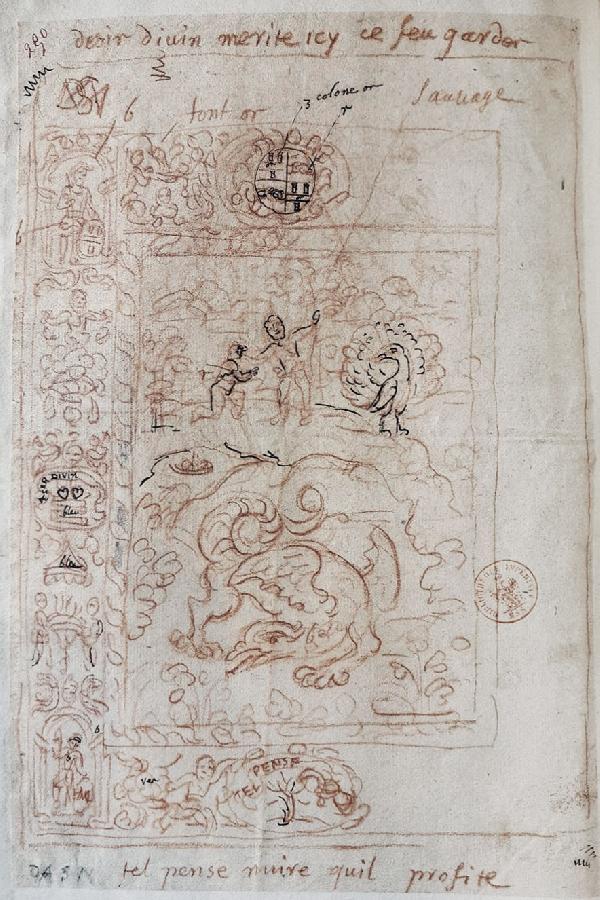 desir divin merite icy ce feu garder
6 tout or 3 colone or Sauvage
r
DIVIN
feu
6
ver
PENSE
TEL
tel pense nuire quil profite